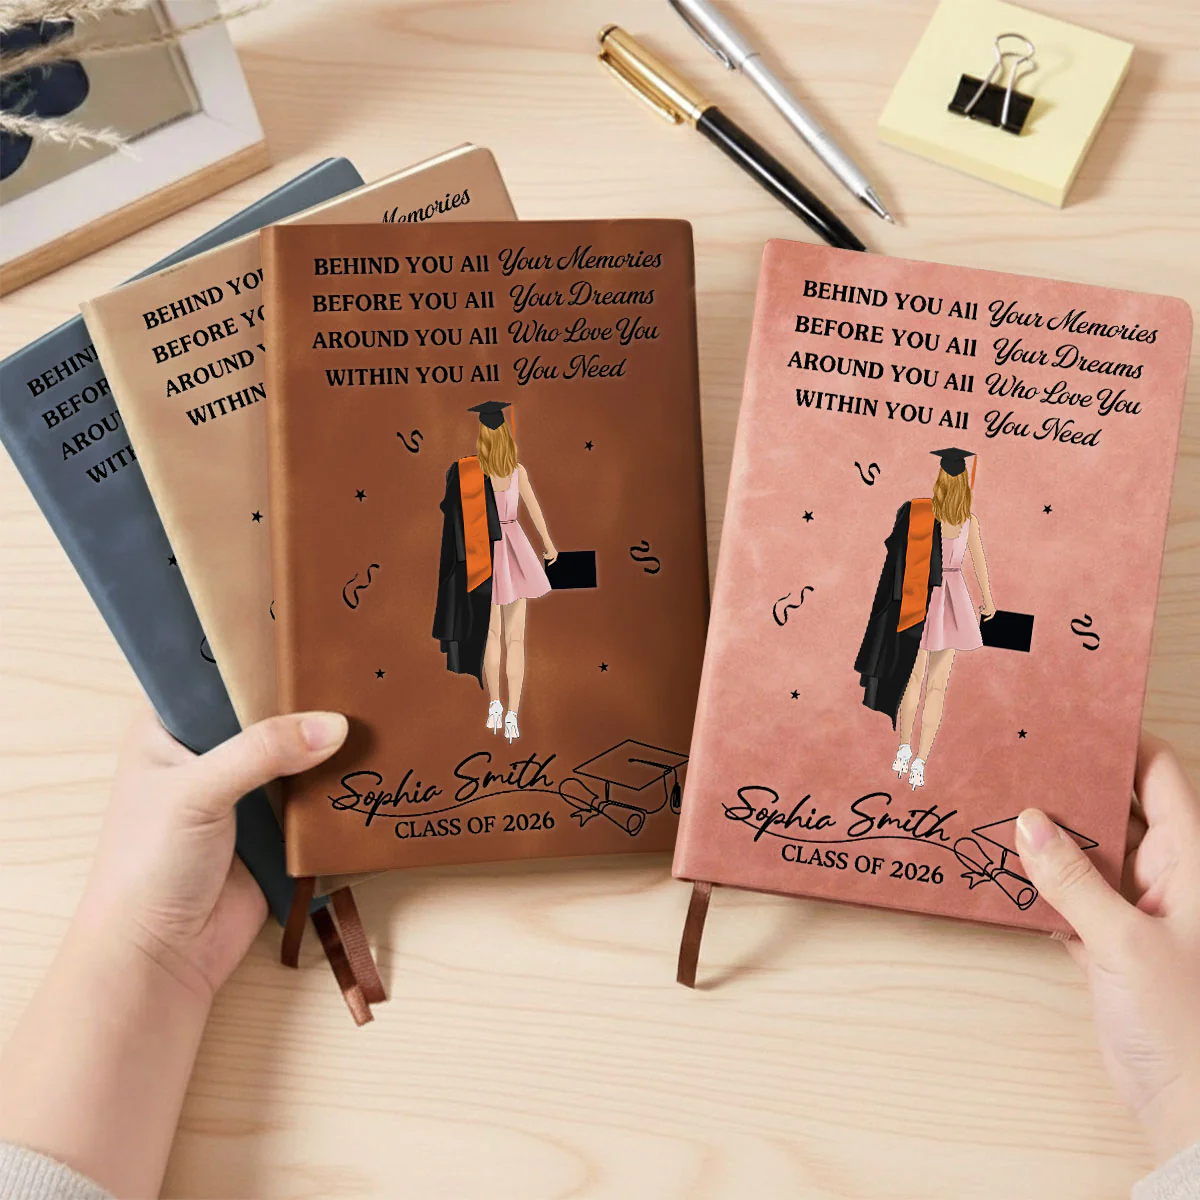 BEHIND
BEFOR
AROU
WITH
Memories
BEHIND YOU
BEFORE YO
AROUND Y
WITHIN
BEHIND YOU All Your Memories
BEFORE YOU All Your Dreams
AROUND YOU All Who Love You
WITHIN YOU All You Need
Sophia Smith
CLASS OF 2026
BEHIND YOU All Your Memories
BEFORE YOU All Your Dreams
AROUND YOU All Who Love You
WITHIN YOU All You Need
Sophia Smith
CLASS OF 2026